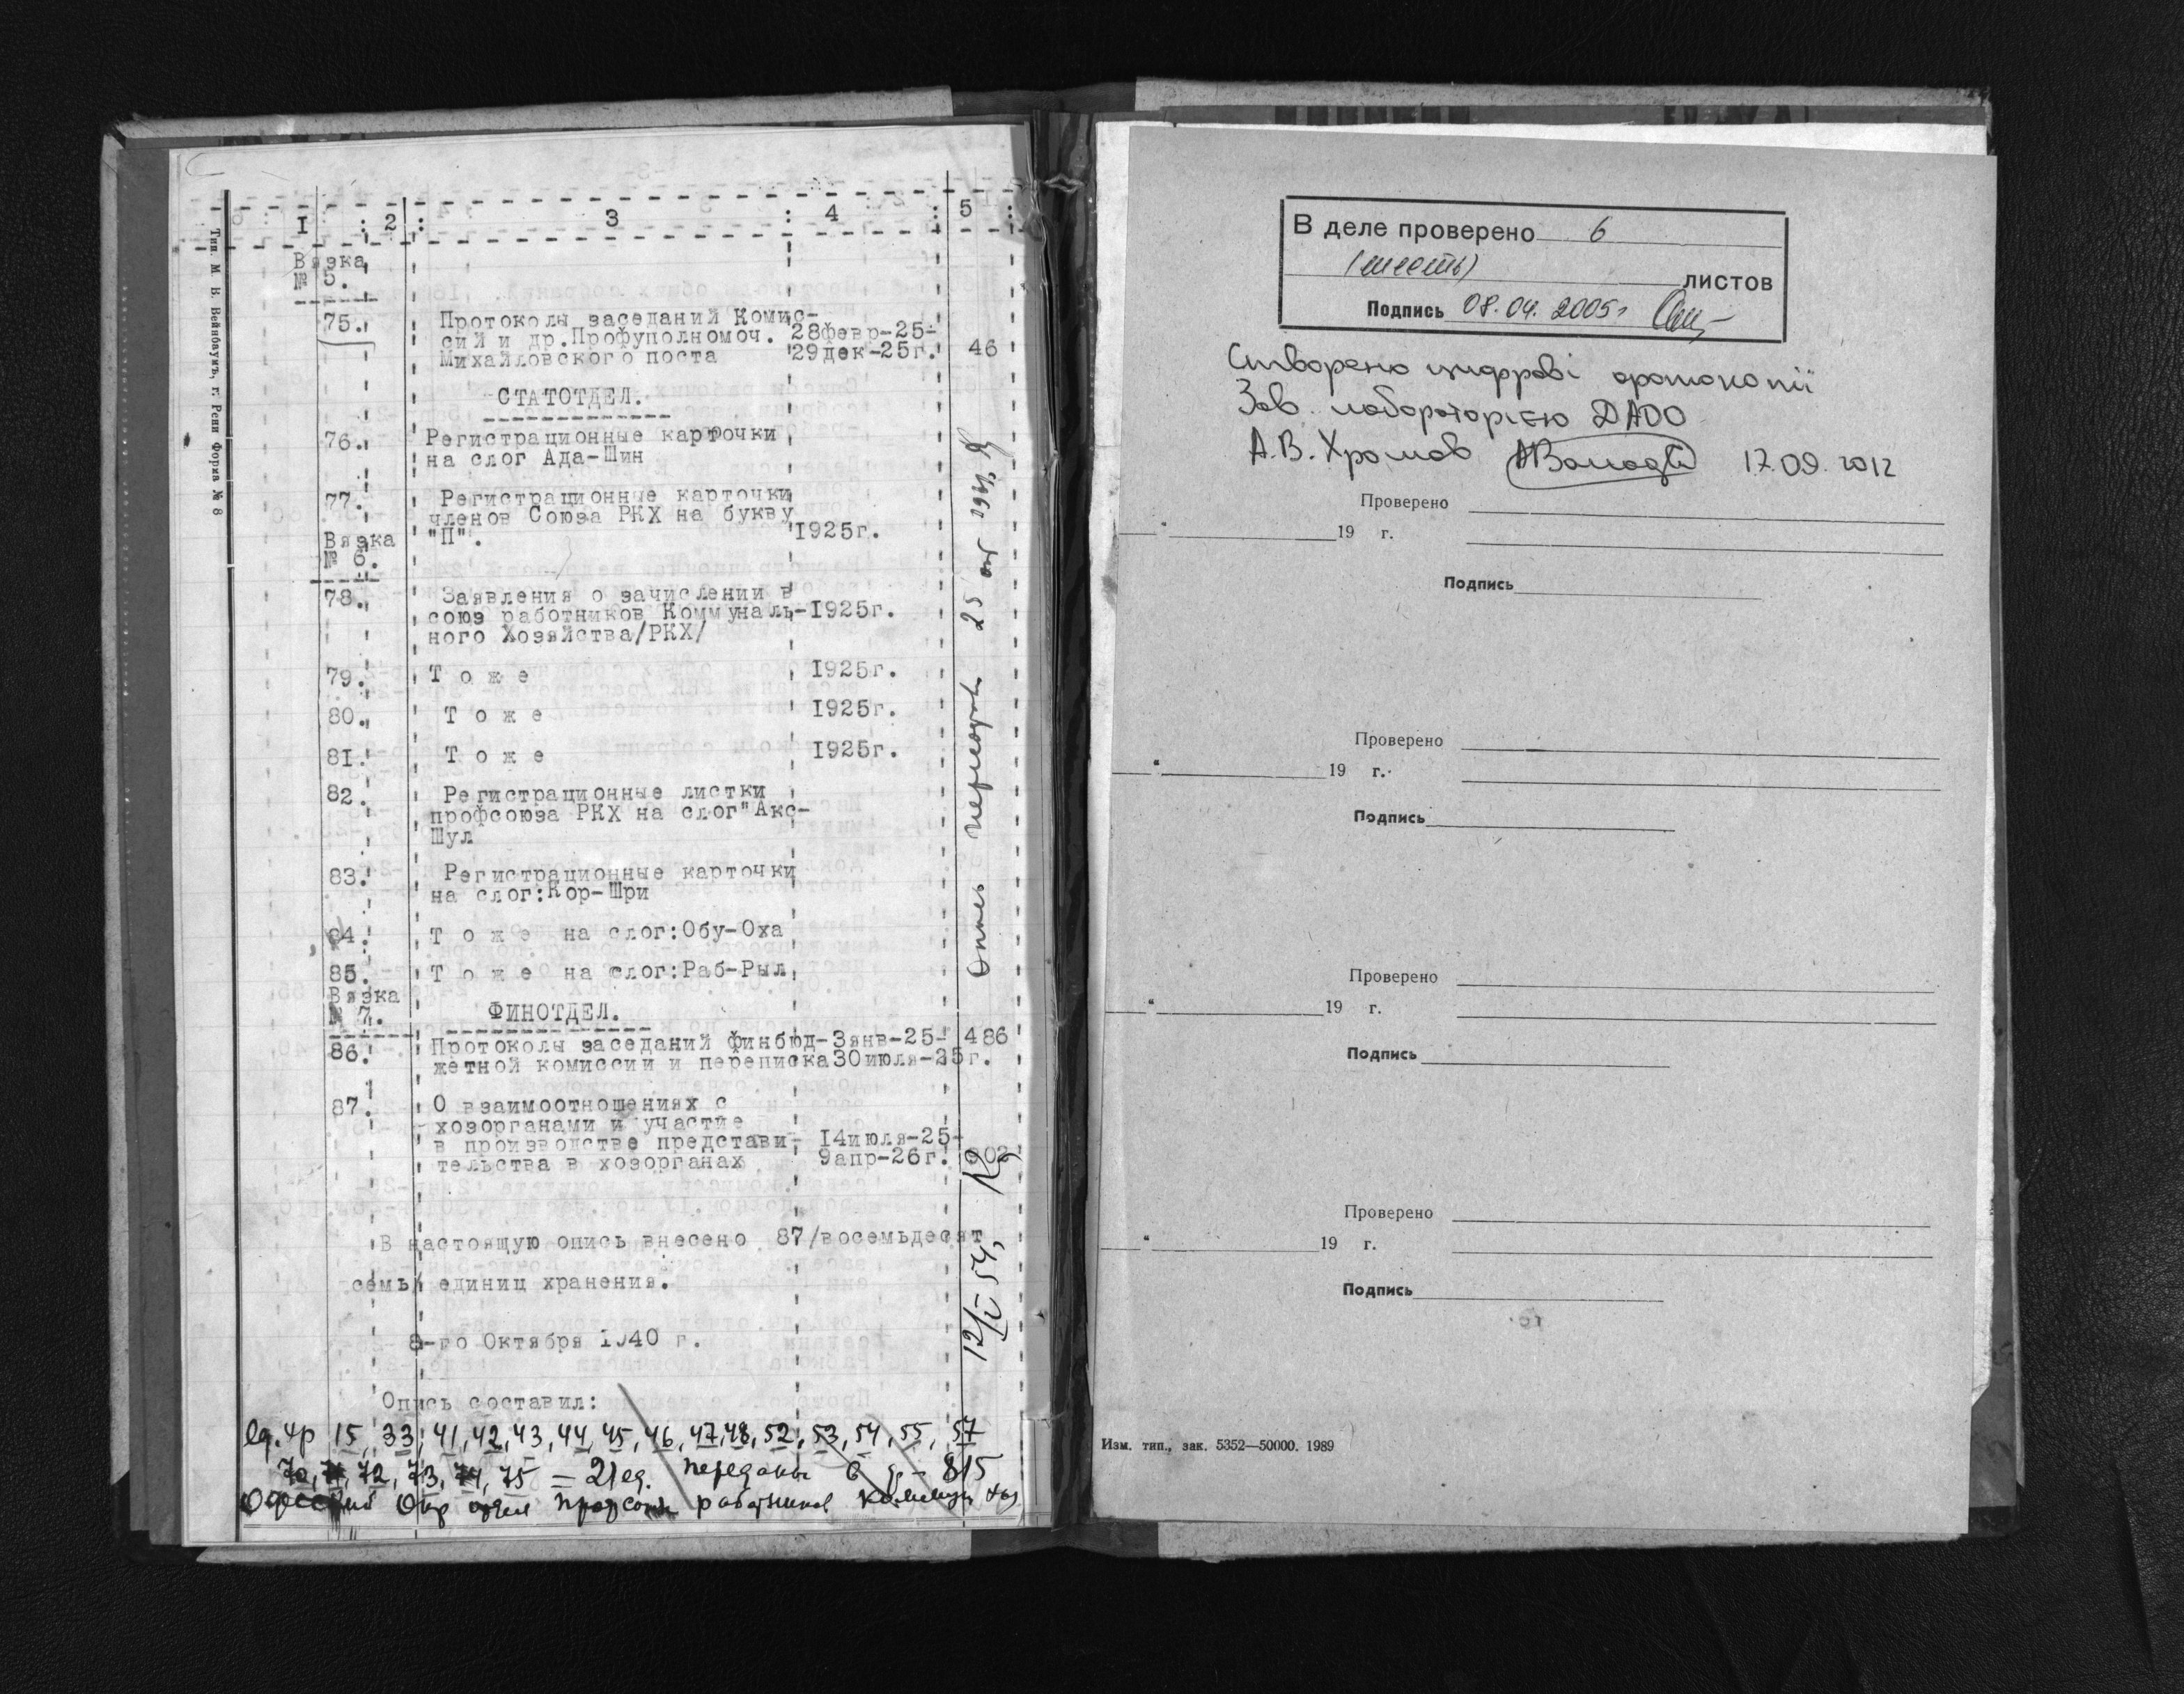 I 2 3 4 5
Вязка
№ 5.
75. Протоколы заседаний Комис-
сий и др.Профуполномоч. 28февр-25-
Михайловского поста 29дек-25г. 46
СТАТОТДЕЛ.
76. Регистрационные карточки
на слог Ада-Шин
77. Регистрационные карточки
членов Союза РКХ на букву
"П". 1925г.
Вязка
№ 6.
78. Заявления о зачислении в
союз работников Коммуналь- 1925г.
ного Хозяйства/РКХ/
79. Т о ж е 1925г.
80. Т о ж е 1925г.
81. Т о ж е 1925г.
82. Регистрационные листки
профсоюза РКХ на слог"Акс-
Шул
83. Регистрационные карточки
на слог:Кор-Шри
84. Т о ж е на слог:Обу-Оха
85. Т о ж е на слог:Раб-Рыл
Вязка
№ 7.
ФИНОТДЕЛ.
86. Протоколы заседаний финбюд- 3янв-25- 486
жетной комиссии и переписка 30июля-25г.
87. О взаимоотношениях с
хозорганами и участие
в производстве представи- 14июля-25-
тельства в хозорганах 9апр-26г. 902
В настоящую опись внесено 87/восемьдесят
семь/ единиц хранения.
8-го Октября 1940 г.
Опись составил:
ед. хр 15, 33, 41, 42, 43, 44, 45, 46, 47, 48, 52, 53, 54, 55, 57
70, 71, 72, 73, 74, 75 = 21 ед. переданы в ф- 815
Одесский Окр отдел профсоюза работников коммун хоз
Опись
12/I 54,
Тип. М. В. Вейнбаумъ, г. Рени Форма № 8
В деле проверено 6
(шесть) листов
Подпись 08.04.2005г
Створено цифрові фотокопії
Зав. лабораторією ДАОО
А.В. Хромов 17.09.2012
Проверено
" 19 г.
Подпись
Проверено
" 19 г.
Подпись
Проверено
" 19 г.
Подпись
Проверено
" 19 г.
Подпись
Изм. тип., зак. 5352—50000. 1989